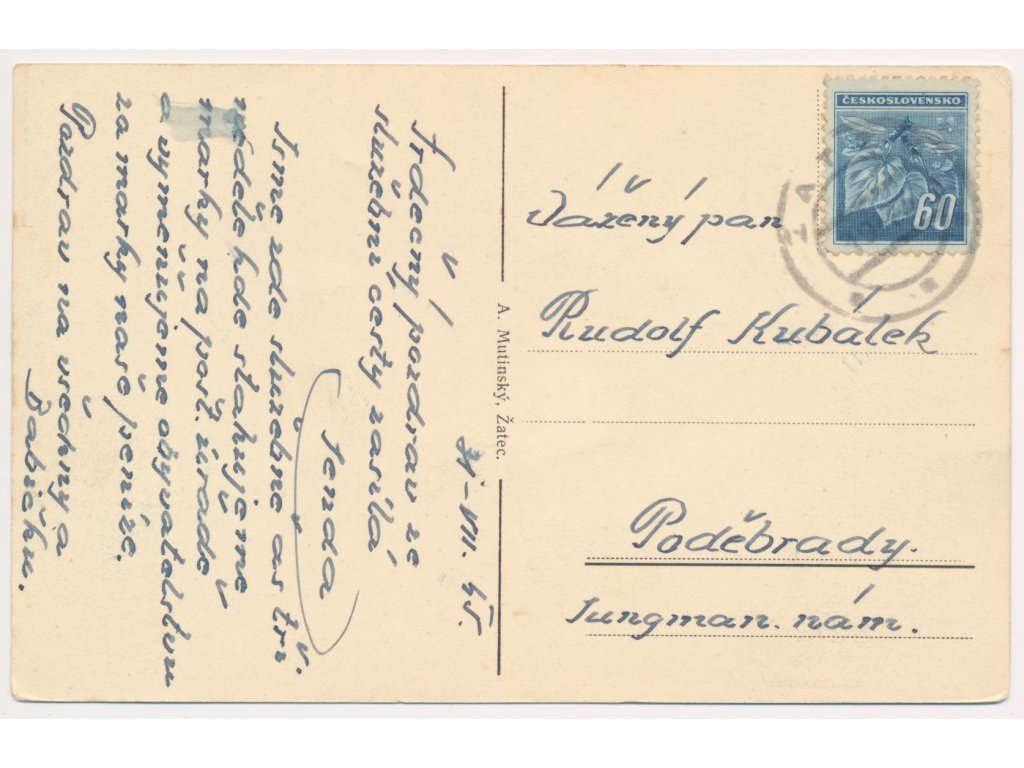 31-VII. 45.
Srdečný pozdrav ze
služební cesty zasílá
Jenda
Jsme zde služebně as tři
neděle kde stahujeme
marky na pošt. úřadě
a vyměňujeme obyvatelstvu
za marky naše peníze.
Pozdrav na všechny a
Babičku.
A. Mutinský, Žatec.
ČESKOSLOVENSKO
60
Vážený pan
Rudolf Kubálek
Poděbrady.
Jungman. nám.